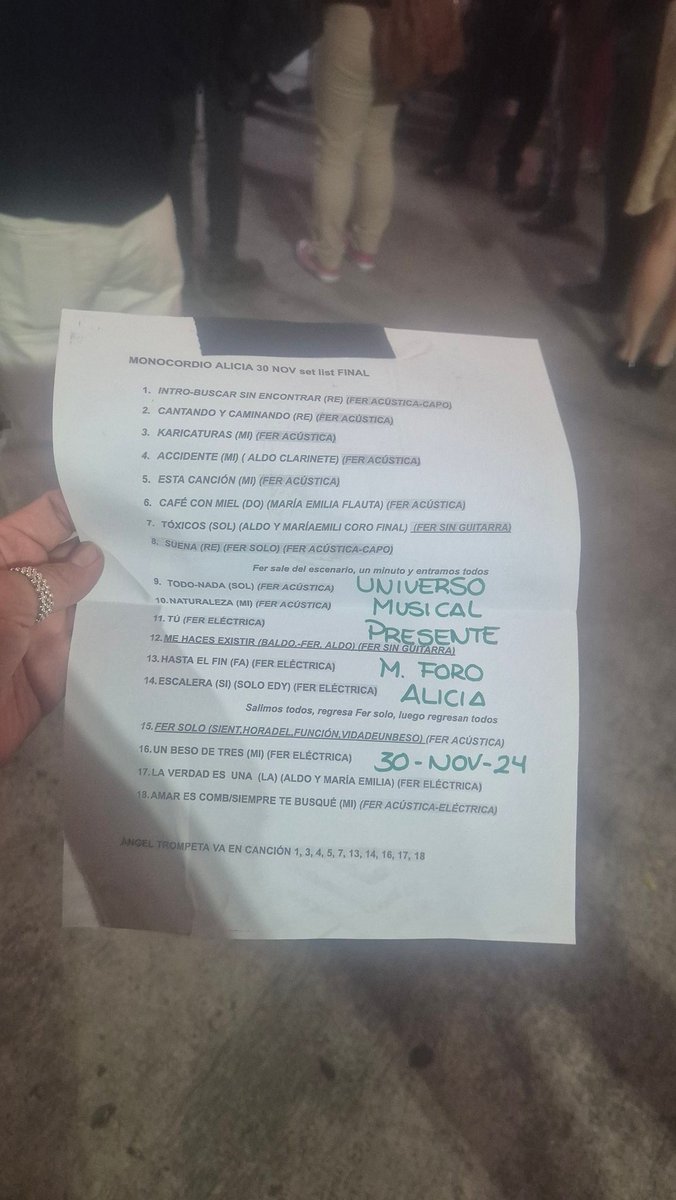 MONOCORDIO ALICIA 30 NOV set list FINAL
1. INTRO-BUSCAR SIN ENCONTRAR (RE) (FER ACÚSTICA-CAPO)
2. CANTANDO Y CAMINANDO (RE) (FER ACÚSTICA)
3. KARICATURAS (MI) (FER ACÚSTICA)
4. ACCIDENTE (MI) ( ALDO CLARINETE) (FER ACÚSTICA)
5. ESTA CANCIÓN (MI) (FER ACÚSTICA)
6. CAFÉ CON MIEL (DO) (MARÍA EMILIA FLAUTA) (FER ACÚSTICA)
7. TÓXICOS (SOL) (ALDO Y MARÍAEMILI CORO FINAL) (FER SIN GUITARRA)
8. SUENA (RE) (FER SOLO) (FER ACÚSTICA-CAPO)
Fer sale del escenario, un minuto y entramos todos
9. TODO-NADA (SOL) (FER ACÚSTICA)
UNIVERSO
10. NATURALEZA (MI) (FER ACÚSTICA)
MUSICAL
11. TÚ (FER ELÉCTRICA)
PRESENTE
12. ME HACES EXISTIR (BALDO.-FER, ALDO) (FER SIN GUITARRA)
13. HASTA EL FIN (FA) (FER ELÉCTRICA)
M. FORO
14. ESCALERA (SI) (SOLO EDY) (FER ELÉCTRICA)
ALICIA
Salimos todos, regresa Fer solo, luego regresan todos
15. FER SOLO (SIENT,HORADEL,FUNCIÓN,VIDADEUNBESO) (FER ACÚSTICA)
16. UN BESO DE TRES (MI) (FER ELÉCTRICA)
30-NOV-24
17. LA VERDAD ES UNA (LA) (ALDO Y MARÍA EMILIA) (FER ELÉCTRICA)
18. AMAR ES COMB/SIEMPRE TE BUSQUÉ (MI) (FER ACÚSTICA-ELÉCTRICA)
ÁNGEL TROMPETA VA EN CANCIÓN 1, 3, 4, 5, 7, 13, 14, 16, 17, 18